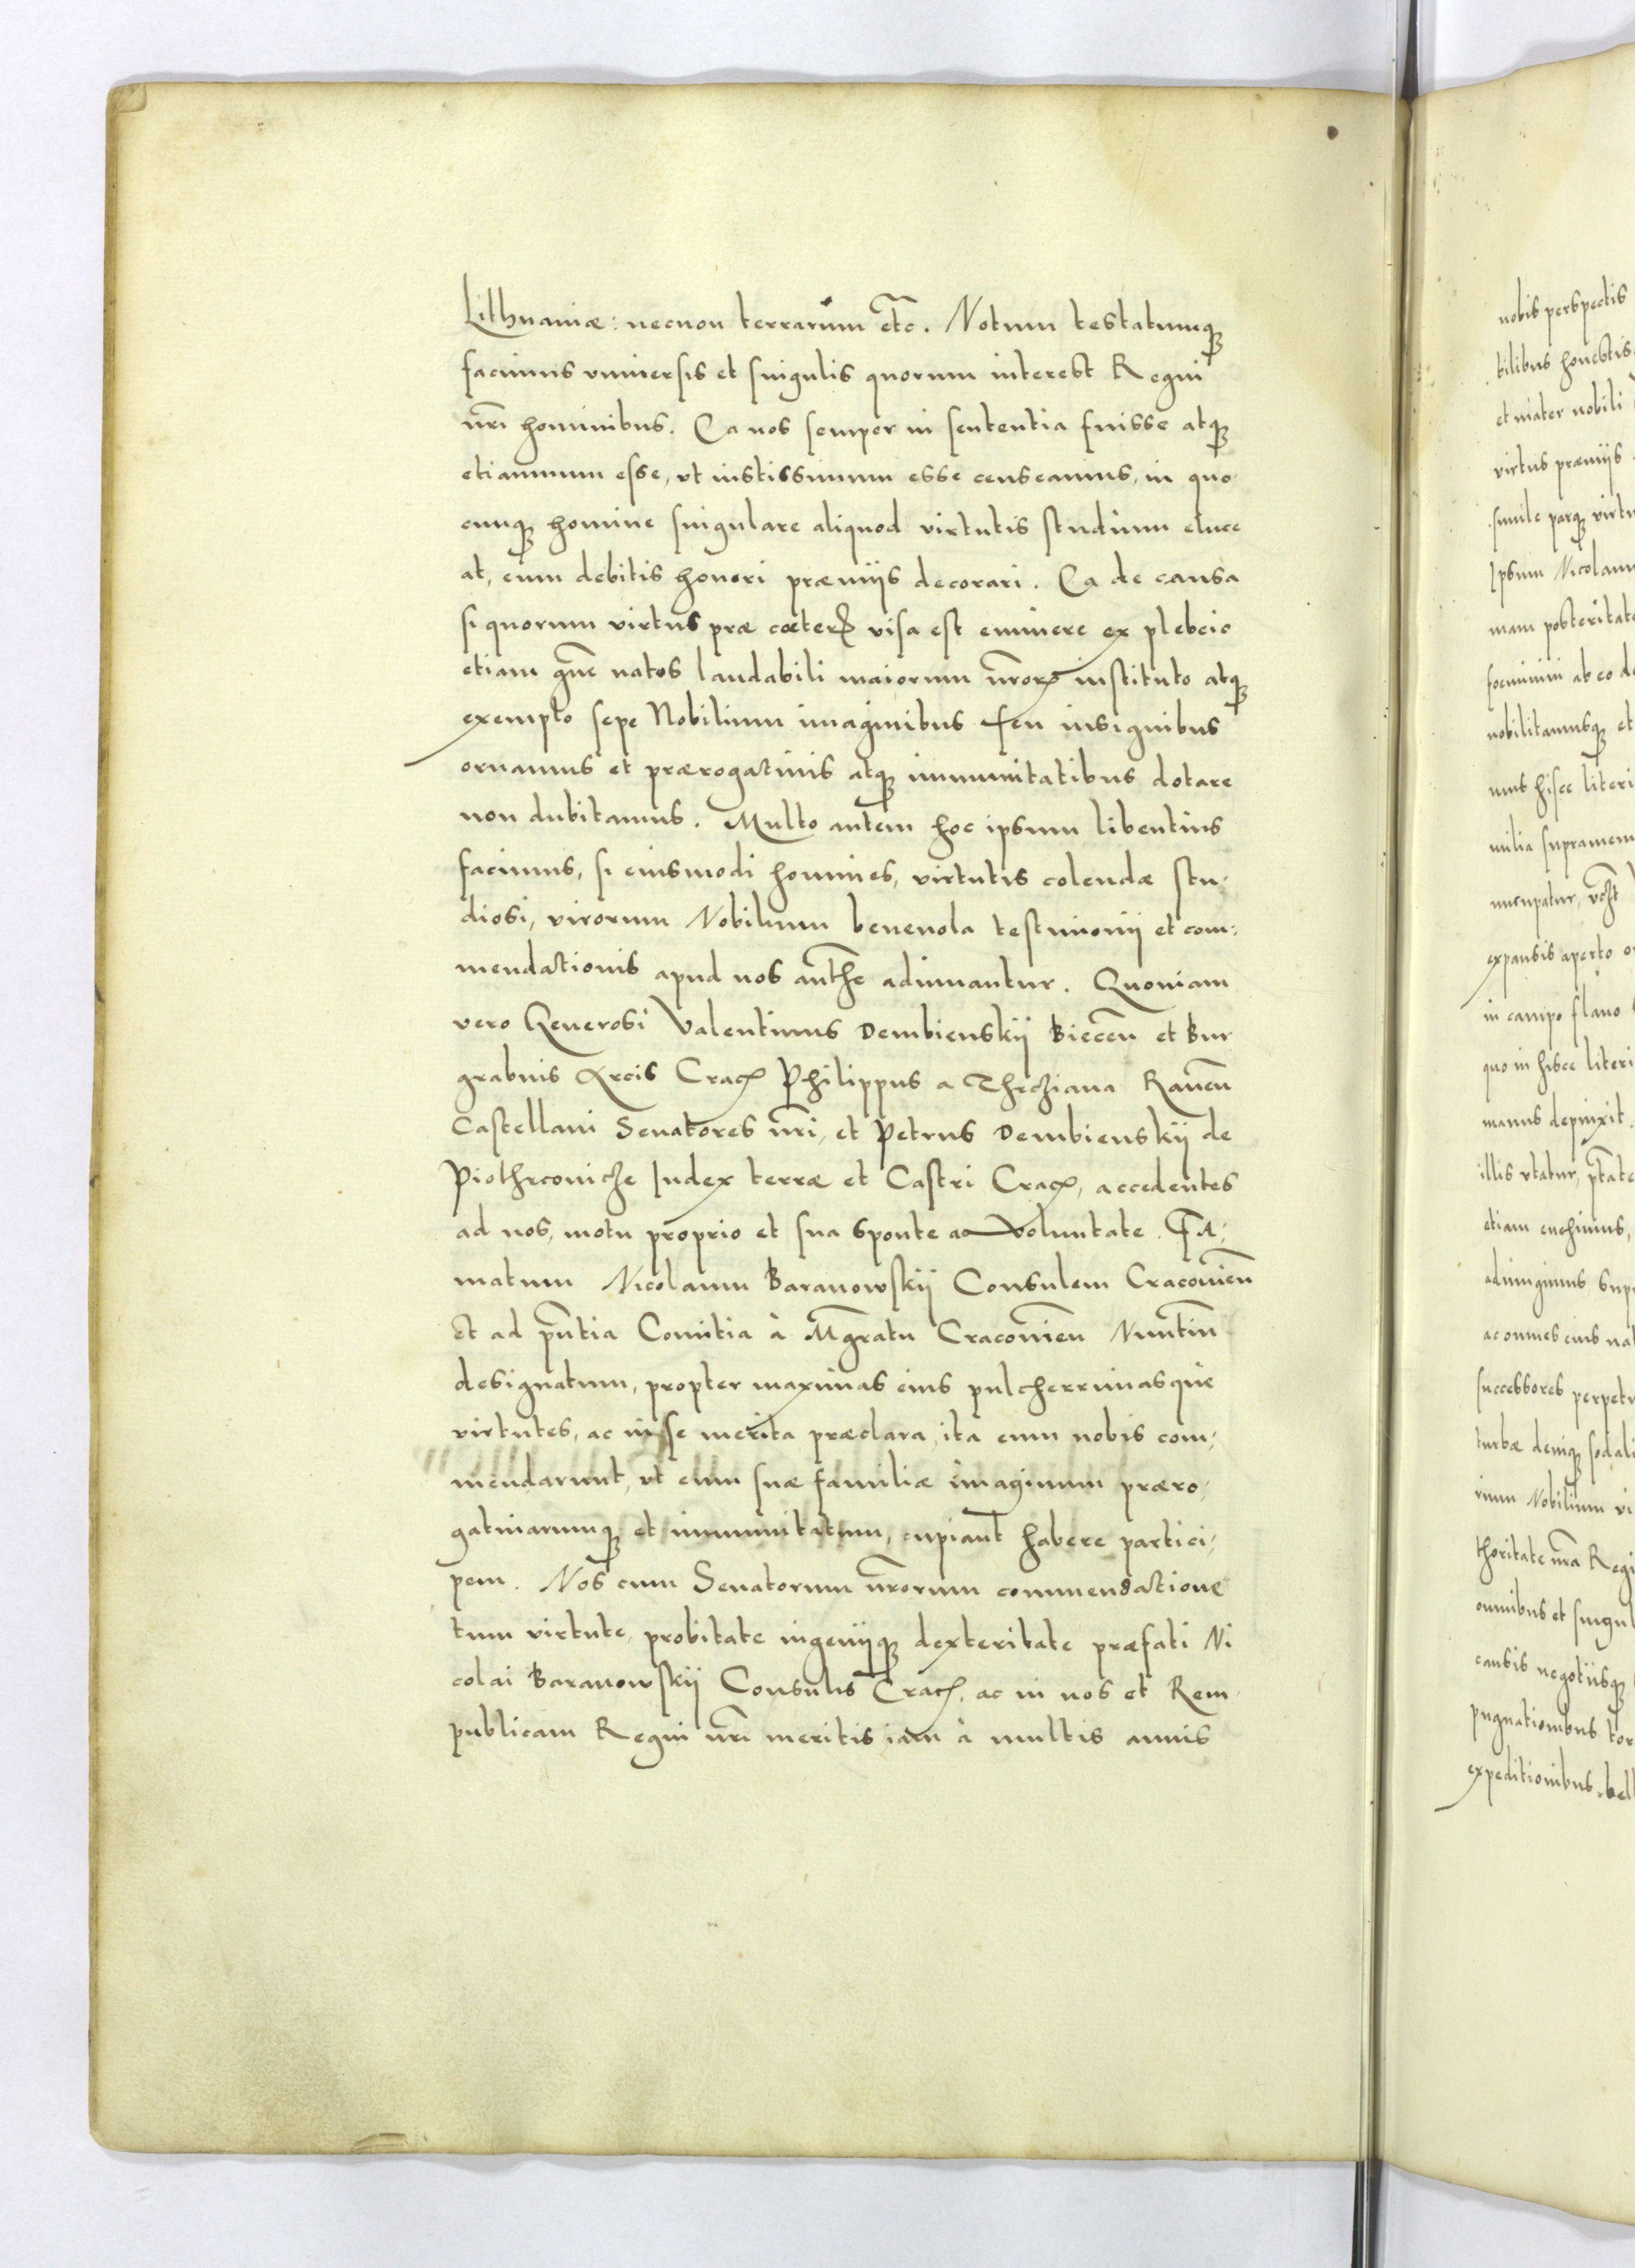 Lithuaniæ: necnon terrarum etc. Notum testatumq
facimus vniuersis et singulis quorum interest Regni
nri hominibus. Ea nos semper in sententia fuisse atq
etiamnum esse, vt iustissimum esse censeamus, in quo
cunq homine singulare aliquod virtutis studium eluce
at, eum debitis honori præmijs decorari. Ea de causa
si quorum virtus præ cæter visa est eminere ex plebeio
etiam gne natos laudabili maiorum nror instituto atq
exemplo sepe Nobilium imaginibus seu insignibus
ornamus et prærogatiuis atq immunitatibus dotare
non dubitamus. Multo autem hoc ipsum libentius
facimus, si eiusmodi homines, virtutis colendæ stu-
diosi, virorum Nobilium beneuola testimonij et com:
mendationis apud nos authe adiuuantur. Quoniam
vero Generosi Valentinus Dembienskij Biecen et Bur
grabius Arcis Crac Philippus a Threziana Rauen
Castellani Senatores nri, et Petrus Dembienskij de
Piothrconicze Iudex terræ et Castri Crac, accedentes
ad nos, motu proprio et sua sponte ac Voluntate. FA:
matum Nicolaum Baranowskij Consulem Cracouien
Et ad pntia Comitia à Mgratu Cracouien Nuntiu
designatum, propter maximas eius pulcherrimasque
virtutes, ac in se merita præclara, ita eum nobis com:
mendarunt, vt eum suæ familiæ imaginum præro:
gatiuarumq et immunitatum, cupiant habere partici:
pem. Nos cum Senatorum nrorum commendatione
tum virtute, probitate ingenijq dexteritate præfati Ni
colai Baranowskij Consulis Crac, ac in nos et Rem
publicam Regni nri meritis iam à multis annis
nobis perspectis
tilibus honestis
et mater nobili
virtus præmijs
simile parq virtu
Ipsum Nicolaum
mam posteritate
foeminini ab eo de
nobilitamusq et
mus hisce literi
milia supramem
nuncupatur,
expansis aperto
in campo flauo
quo in hisce literi
manus depinxit.
illis vtatur,
etiam euehimus,
adiungimus
ac omnes eius nat
successores perpetu
turbæ deniq sodali
rium Nobilium vi
thoritate nra Regi
omnibus et singul
causis negotijsq
pugnationibus tor
expeditionibus, bell